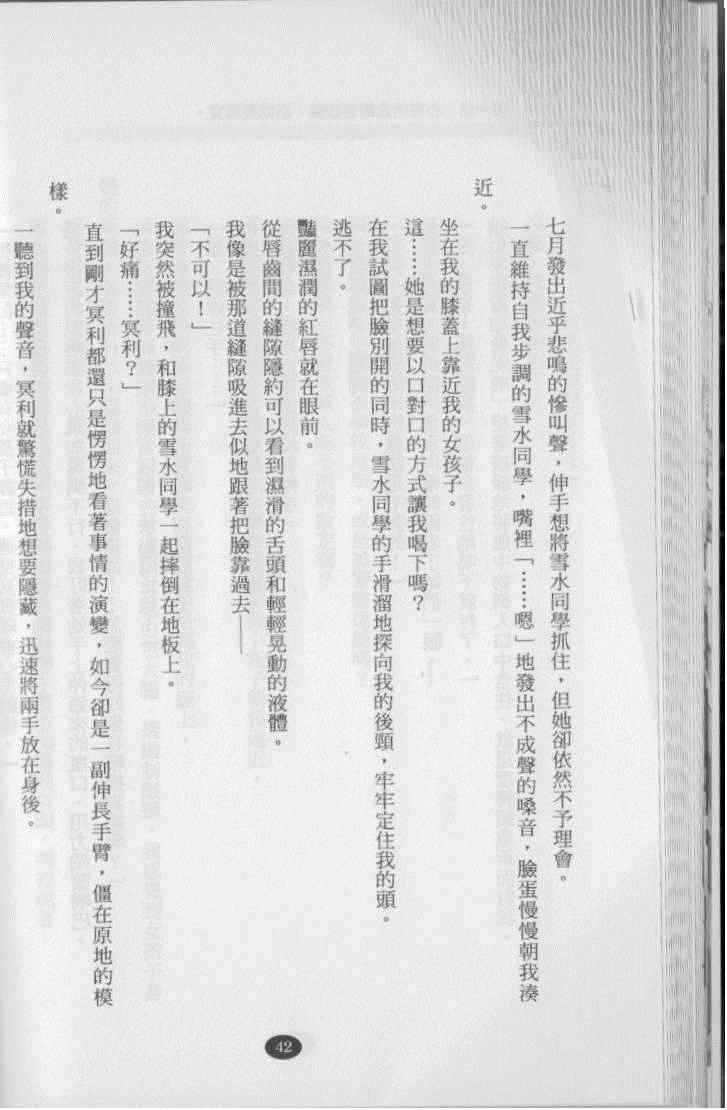 七月發出近乎悲鳴的慘叫聲，伸手想將雪水同學抓住，但她卻依然不予理會。
一直維持自我步調的雪水同學，嘴裡「……嗯」地發出不成聲的嗓音，臉蛋慢慢朝我湊
近。
坐在我的膝蓋上靠近我的女孩子。
這……她是想要以口對口的方式讓我喝下嗎？
在我試圖把臉別開的同時，雪水同學的手滑溜地探向我的後頸，牢牢定住我的頭。
逃不了。
豔麗濕潤的紅唇就在眼前。
從唇齒間的縫隙隱約可以看到濕滑的舌頭和輕輕晃動的液體。
我像是被那道縫隙吸進去似地跟著把臉靠過去——
「不可以！」
我突然被撞飛，和膝上的雪水同學一起摔倒在地板上。
「好痛……冥利？」
直到剛才冥利都還只是愣愣地看著事情的演變，如今卻是一副伸長手臂，僵在原地的模
樣。
一聽到我的聲音，冥利就驚慌失措地想要隱藏，迅速將兩手放在身後。
42